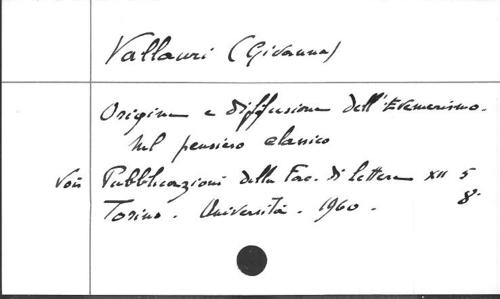 Vallauri (Giovanna)
Origine e diffusione dell'Evemerismo.
nel pensiero classico
Voir Pubblicazioni della Fac. di lettere XII 5
Torino. Università. 1960. 8°